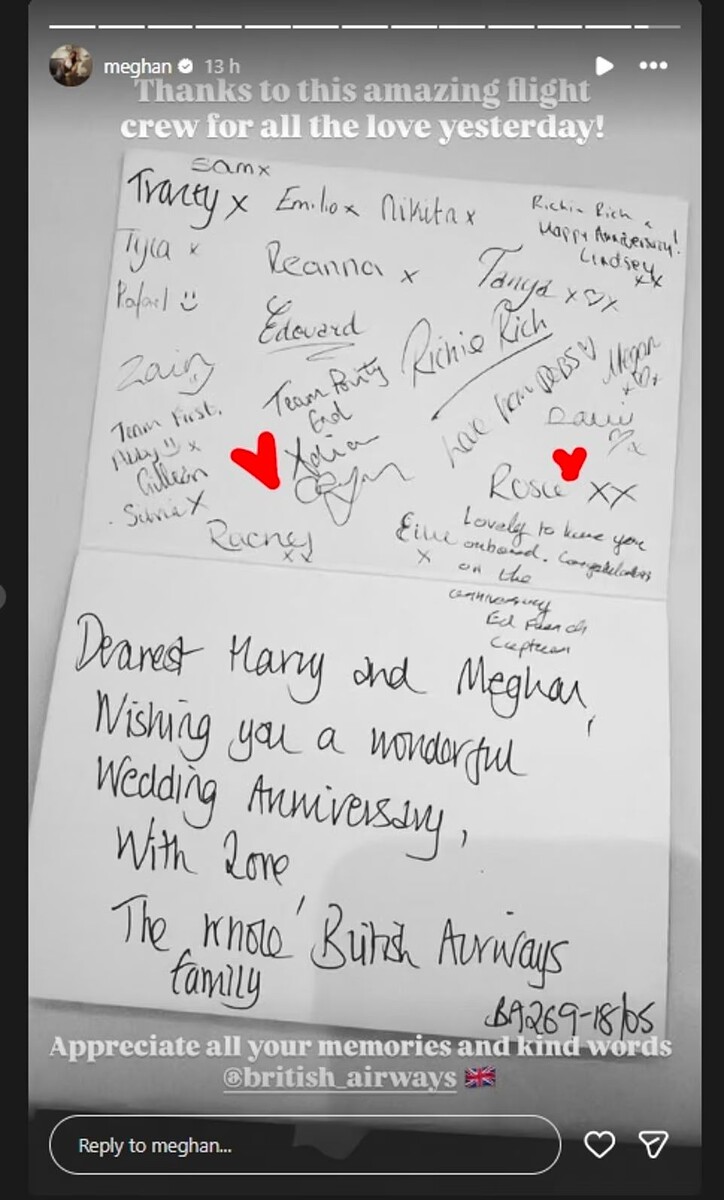 meghan 13 h
Thanks to this amazing flight
crew for all the love yesterday!
Samx
Tracey x Emilio x Nikita x
Richie Rich
Happy Anniversary!
Lindsey
xx
Tyla x
Reanna x
Tanya x♡x
Rafael
Edouard
Richie Rich
Zain
Team Party
End
love from DEBS♡
Megan
x♡x
Team First.
x
Silvia X
Rosie xx
xx
x
Lovely to have you
onboard. Congratulations
on the
anniversary
Ed French
Captain
Dearest Harry and Meghan,
Wishing you a wonderful
Wedding Anniversary,
With Love
The whole British Airways
family
BA269-18/05
Appreciate all your memories and kind words
@british_airways 🇬🇧
Reply to meghan...